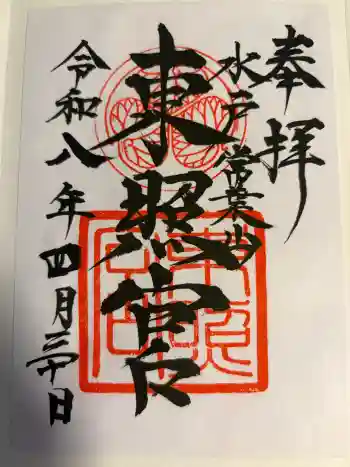 奉拝
水戸 常葉山
東照宮
令和八年四月三十日